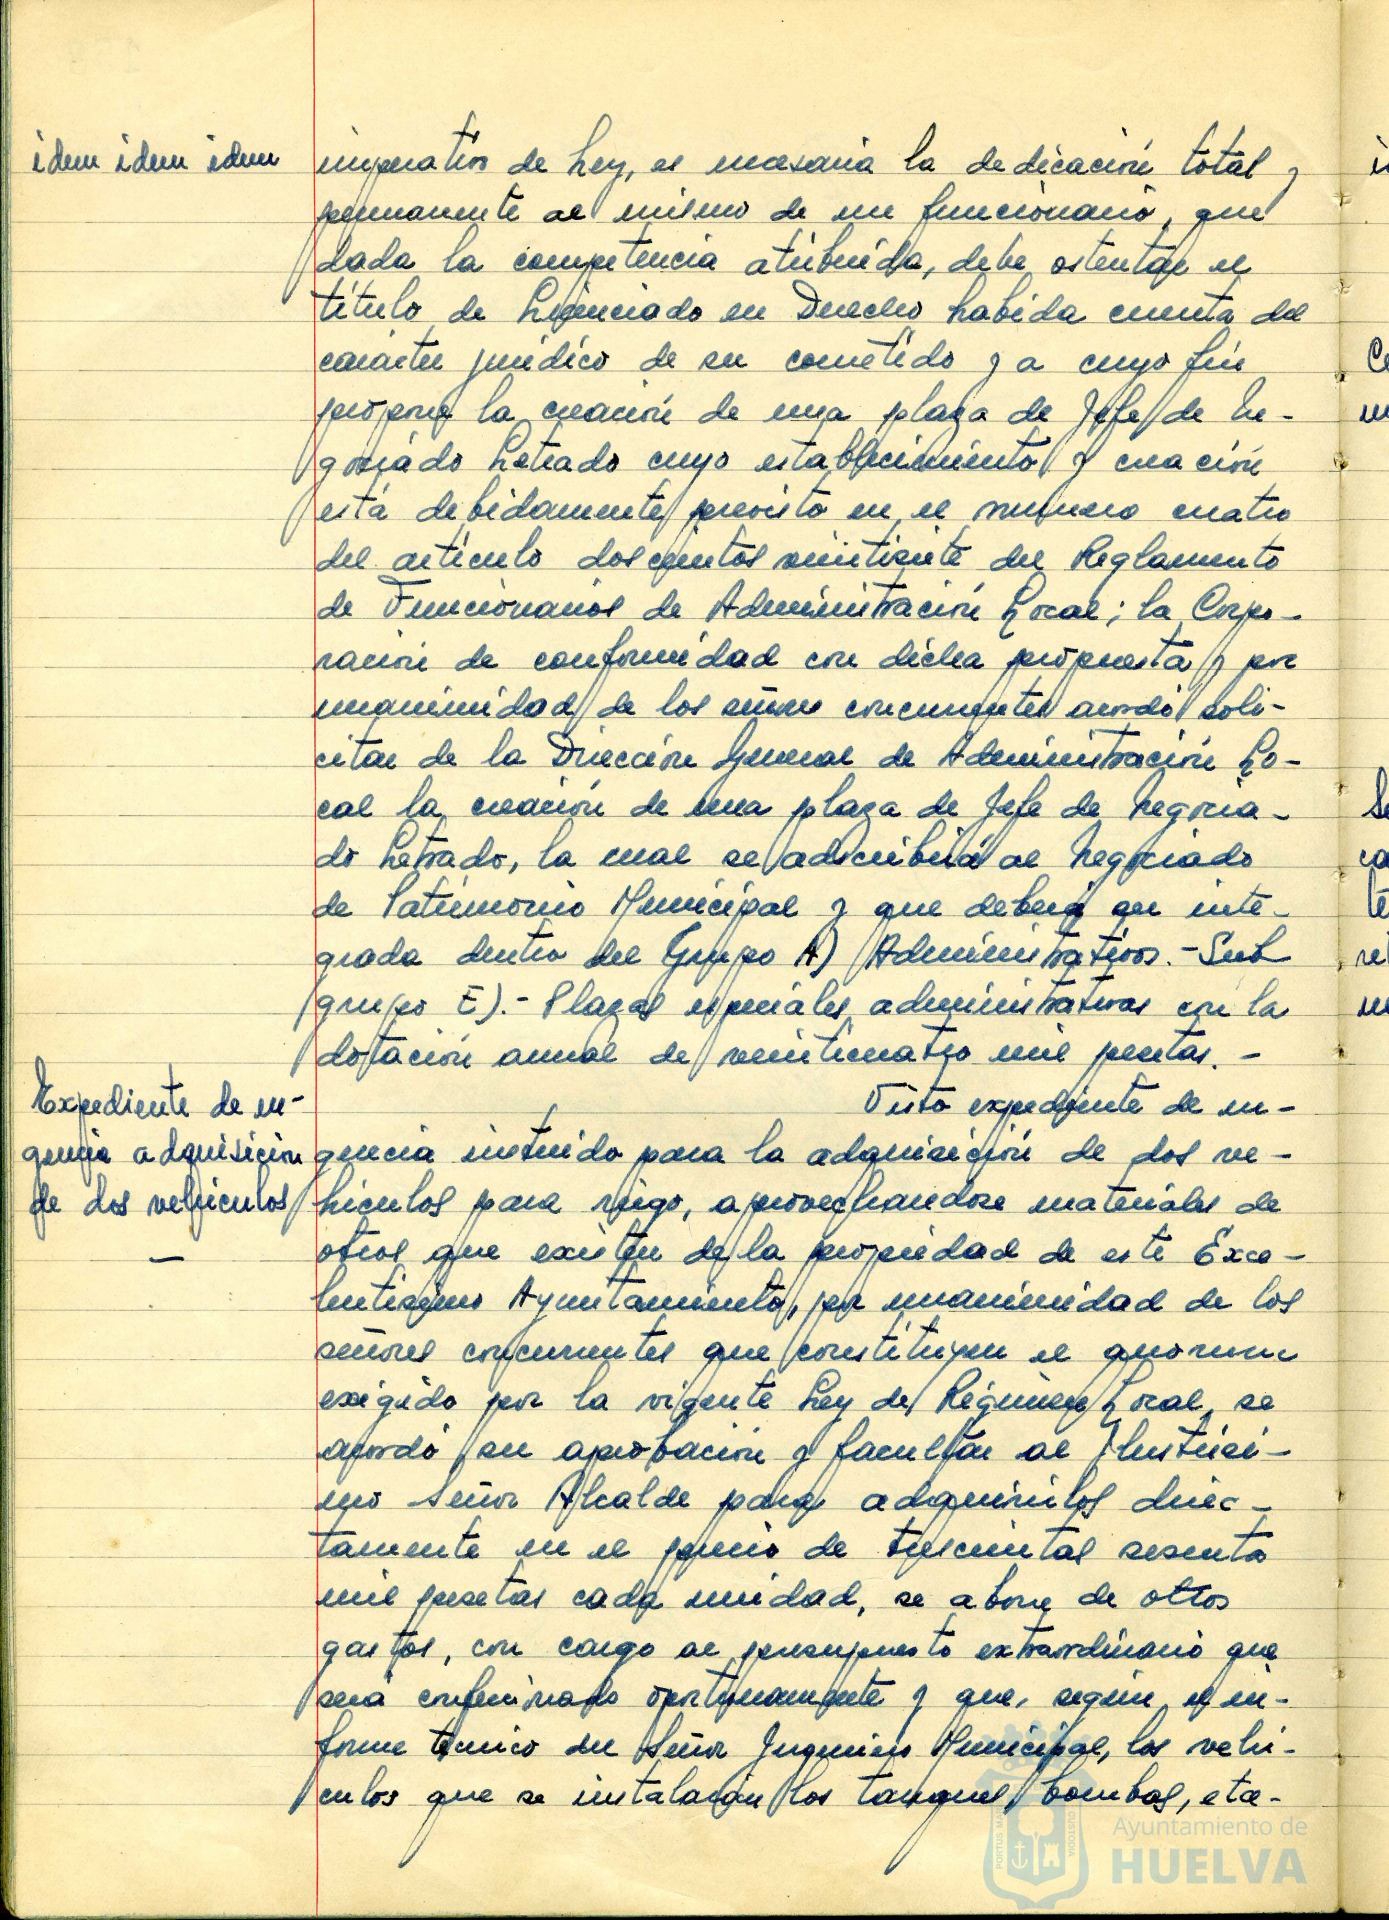 idem idem idem
imperativo de Ley, es necesaria la dedicación total y
permanente al mismo de un funcionario, que
dada la competencia atribuida, debe ostentar el
título de Licenciado en Derecho habida cuenta del
carácter jurídico de su cometido y a cuyo fin
propone la creación de una plaza de Jefe de Ne-
gociado Letrado cuyo establecimiento y creación
está debidamente previsto en el numero cuatro
del artículo doscientos veintisiete del Reglamento
de Funcionarios de Administración Local; la Corpo-
ración de conformidad con dicha propuesta y por
unanimidad de los señores concurrentes acordó soli-
citar de la Dirección General de Administración Lo-
cal la creación de una plaza de Jefe de Negocia-
do Letrado, la cual se adscribirá al Negociado
de Patrimonio Municipal y que deberá ser inte-
grada dentro del Grupo A) Administrativos.- Sub
grupo E).- Plazas especiales administrativas con la
dotación anual de veinticuatro mil pesetas. -
Expediente de ur-
gencia adquisicion
de dos vehiculos
—
Visto expediente de ur-
gencia instruido para la adquisición de dos ve-
hiculos para riego, aprovechandose materiales de
otros que existen de la propiedad de este Exce-
lentisimo Ayuntamiento, por unanimidad de los
señores concurrentes que constituyen el quorum
exigido por la vigente Ley de Régimen Local, se
acordó su aprobación y facultar al Ilustrisi-
mo Señor Alcalde para adquirirlos direc-
tamente en el precio de trescientas sesenta
mil pesetas cada unidad, se abone de otros
gastos, con cargo al presupuesto extraordinario que
será confeccionado oportunamente y que, según el in-
forme tecnico del Señor Ingeniero Municipal, los vehi-
culos que se instalarán los tanques, bombas, etc-
PORTUS MARIS
CUSTODIA
Ayuntamiento de
HUELVA